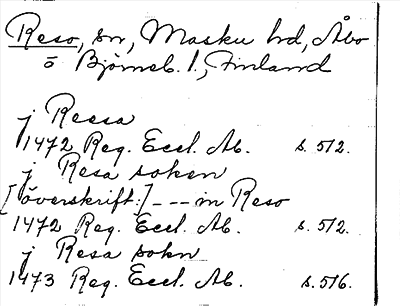 Reso, sn, Masku hd, Åbo
o Björneb. l., Finland
j Reesa
1472 Reg. Eccl. Ab. s. 512.
j Resa soken
[överskrift:] --- in Reso
1472 Reg. Eccl. Ab. s. 512.
j Resa sokn
1473 Reg. Eccl. Ab. s. 516.